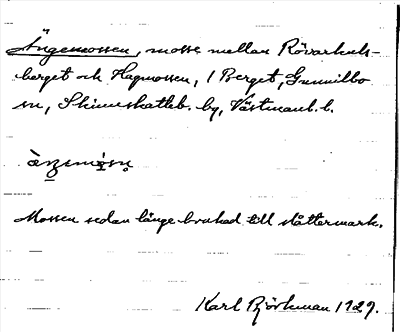 Ängemossen, mosse mellan Rövarkuls-
berget och Hagmossen, 1 Berget, Gunnilbo
sn, Skinnskatteb. by, Västmanl. l.
Mossen sedan länge brukad till slåttermark.
Karl Björkman 1929.